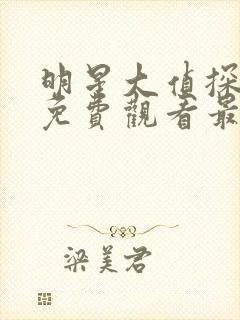 明星大偵探
免費觀看最
梁美君